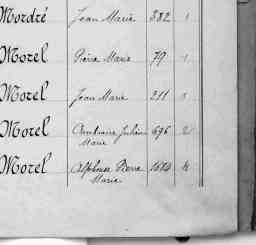 Mordré Jean Marie 882 1
Morel Pierre Marie 79 1
Morel Jean Marie 211 1
Morel Ambroise Julien 696 2
Marie
Morel Alphonse Pierre 1684 4
Marie